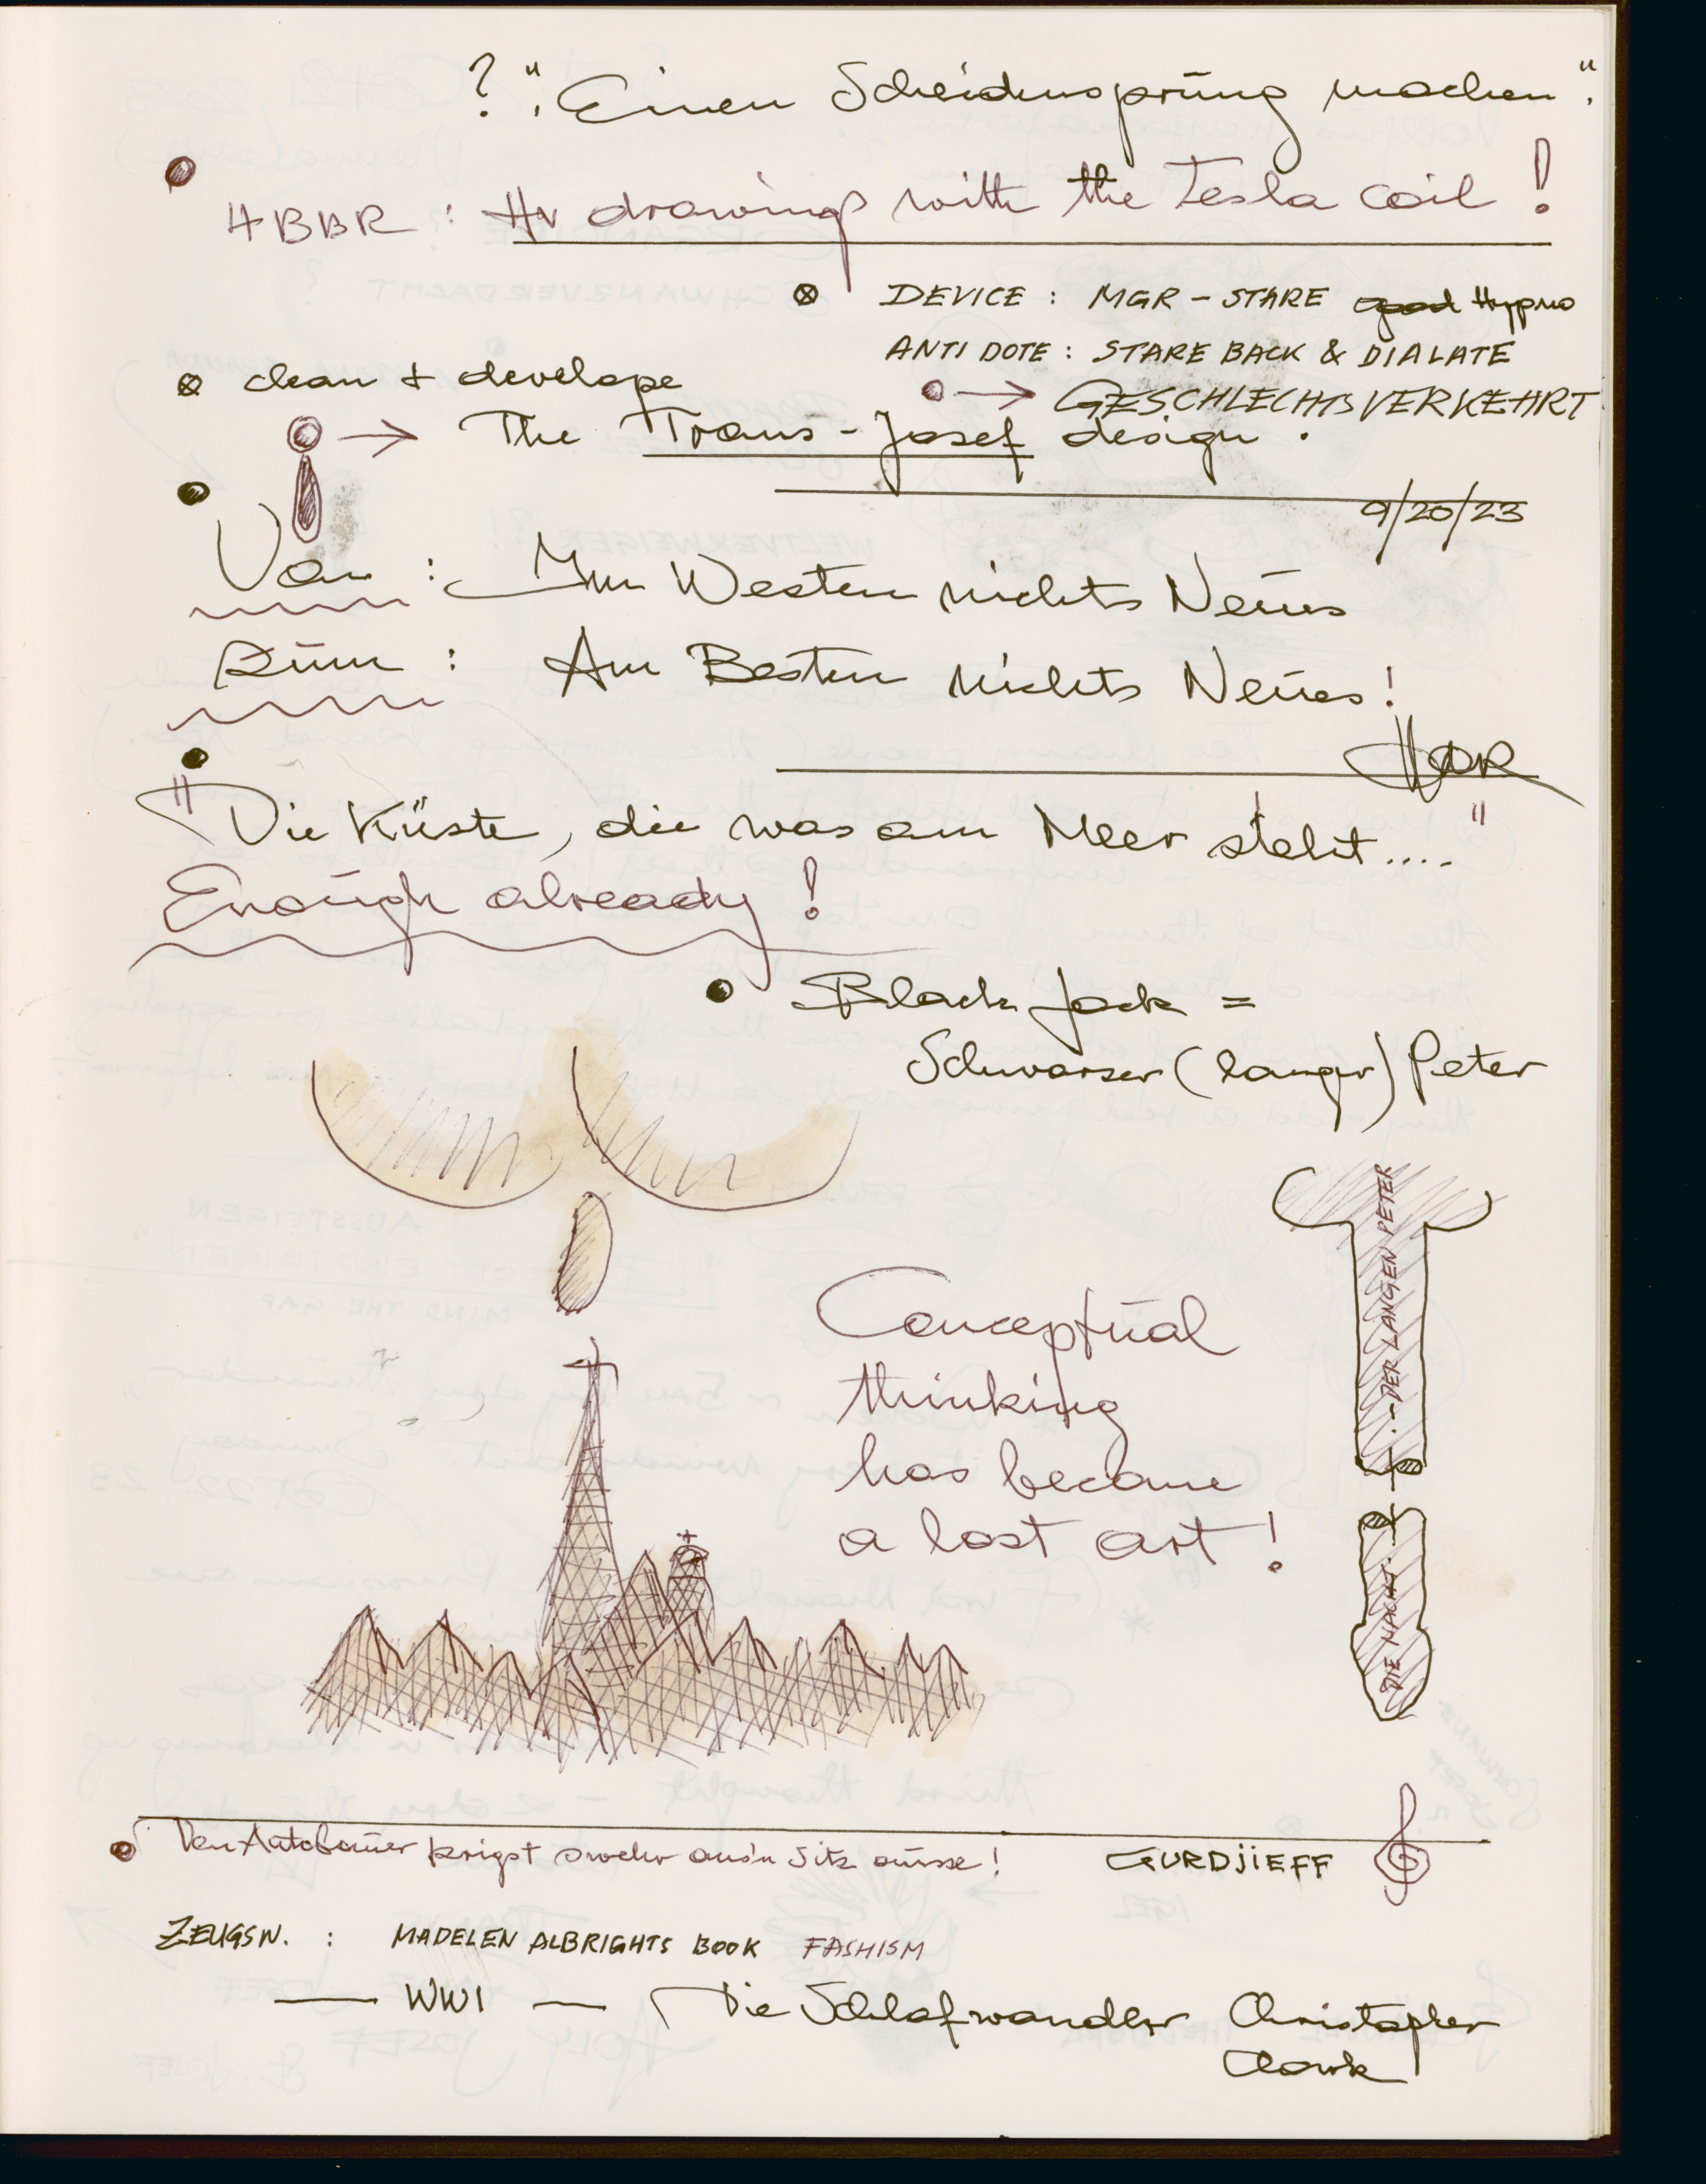 ? "Einen Scheidensprung machen".
4BBR : Hv drawings with the Tesla coil !
DEVICE : MGR - STARE good Hypno
ANTI DOTE : STARE BACK & DIALATE
→ GESCHLECHTSVERKEHRT
clean + develope
→ The Trans-Josef design .
9/20/23
Von : Im Westen nichts Neues
zum : Am Besten nichts Neues !
"Die Küste, die was am Meer steht...."
Enough already !
Black Jack =
Schwarzer (langer) Peter
DER LANGEN PETER
DIE NACHT
Conceptual
thinking
has become
a lost art !
Den Autobauer krigst swehr aus'n Sitz ausse !
GURDJIEFF
ZEUGSN. : MADELEN ALBRIGHTS BOOK FASHISM
— WWI — Die Schlafwandler Christopher
Clark